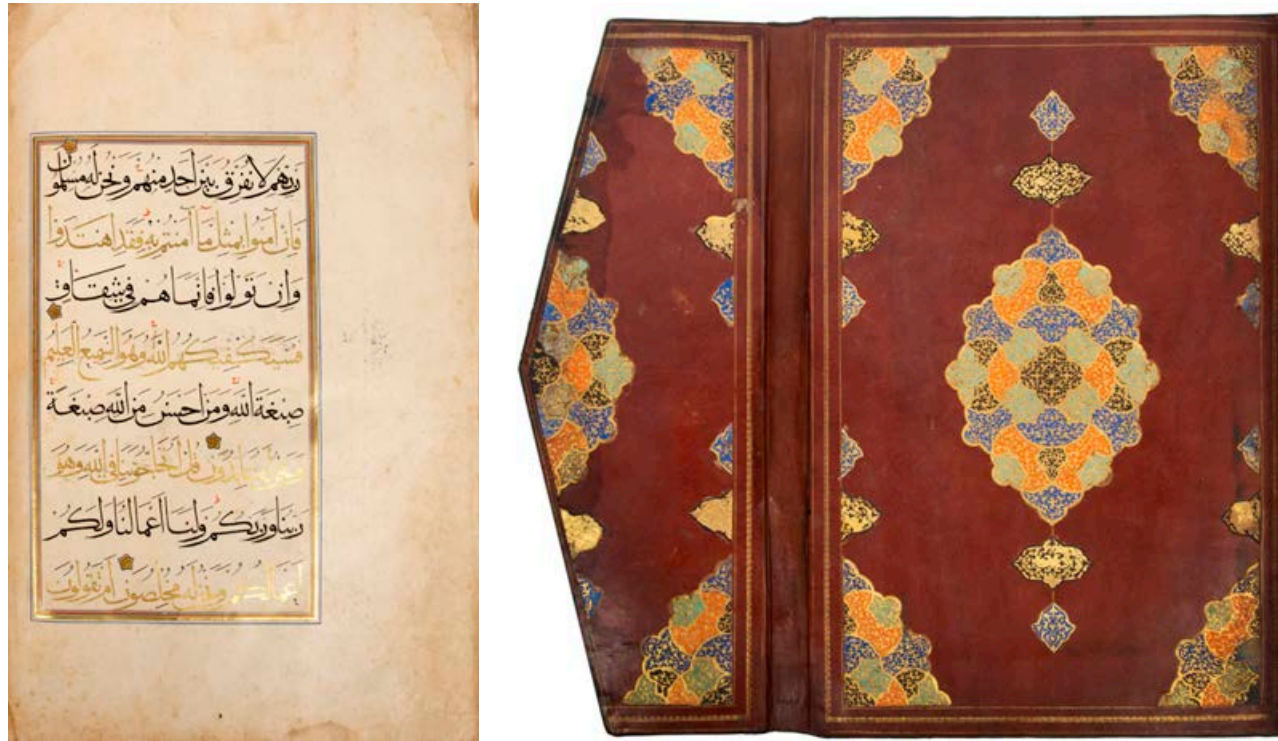 ربهم لا نفرق بين أحد منهم ونحن له مسلمون
فإن آمنوا بمثل ما آمنتم به فقد اهتدوا
وإن تولوا فإنما هم في شقاق
فسيكفيكهم الله وهو السميع العليم
صبغة الله ومن أحسن من الله صبغة
ونحن له عابدون قل أتحاجوننا في الله وهو
ربنا وربكم ولنا أعمالنا ولكم
أعمالكم ونحن له مخلصون أم تقولون